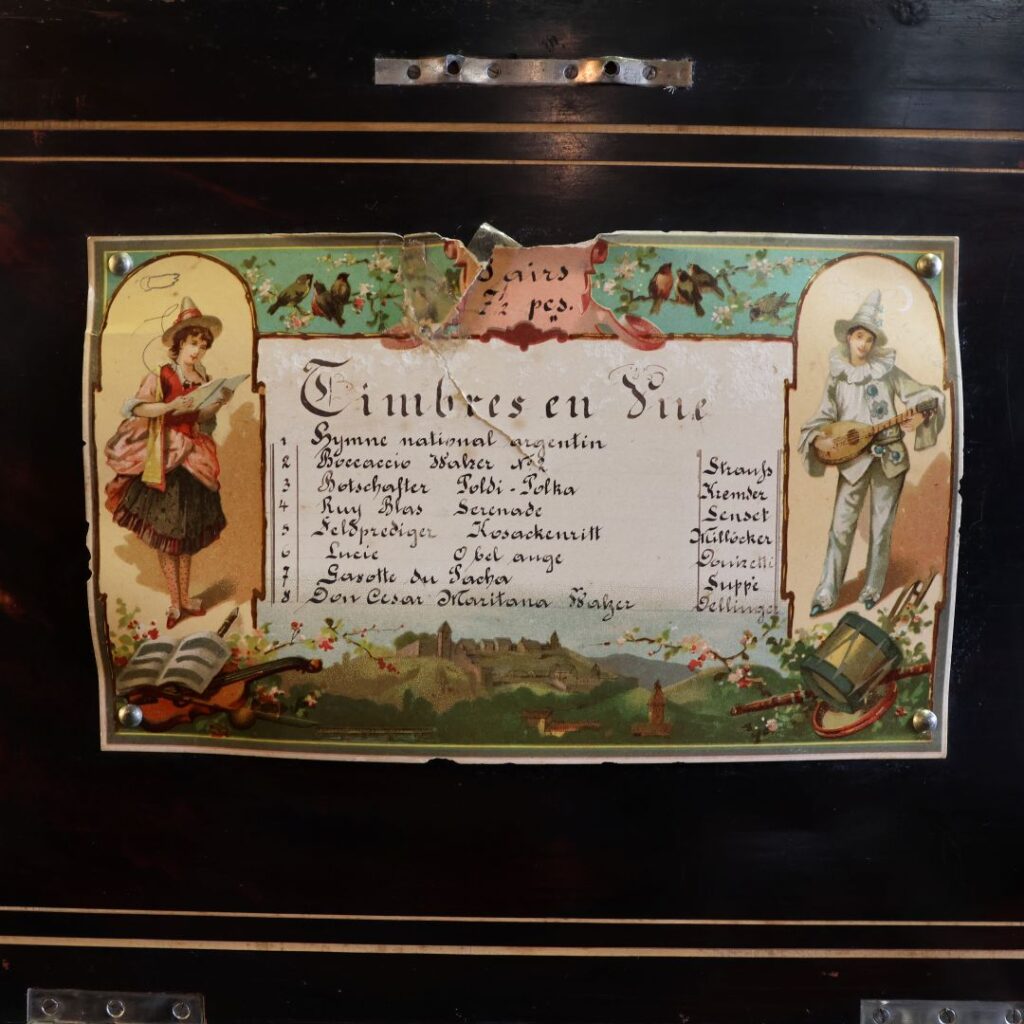 8 airs
7½ pçs.
Timbres en Vue
1 Hymne national argentin
2 Boccaccio Walzer No 2 Strauss
3 Botschafter Poldi-Polka Kremser
4 Ruy Blas Serenade
5 Feldprediger Kosackenritt Millöcker
6 Lucie O bel ange Donizetti
7 Gavotte du Pacha Suppé
8 Don Cesar Maritana Walzer Dellinger